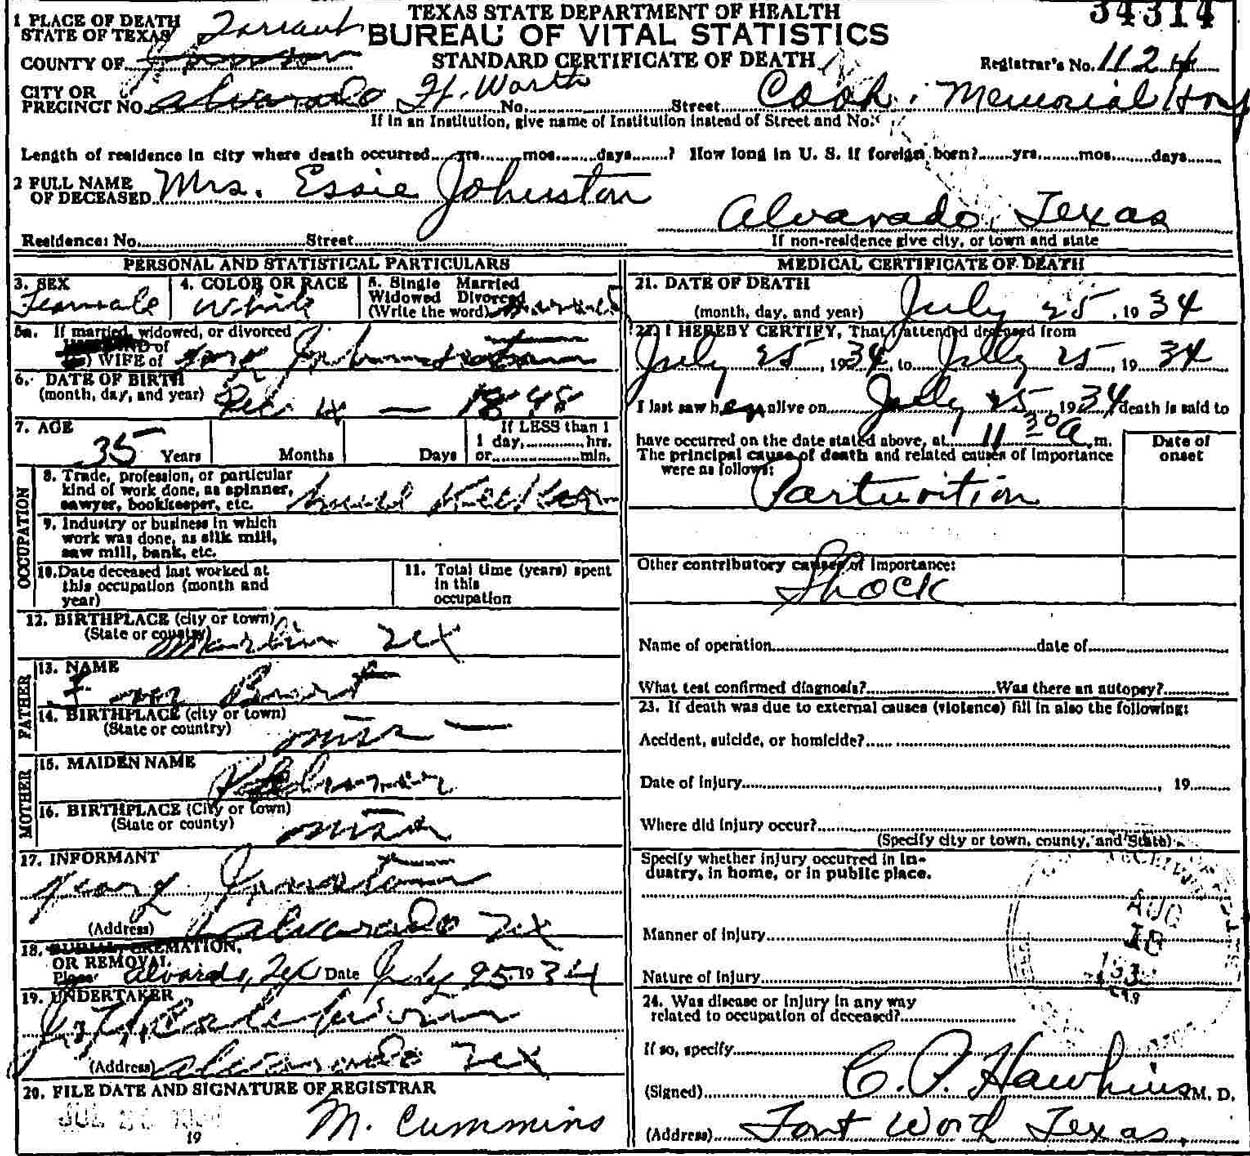 TEXAS STATE DEPARTMENT OF HEALTH
BUREAU OF VITAL STATISTICS
STANDARD CERTIFICATE OF DEATH
34314
Registrar's No. 1124
1 PLACE OF DEATH
STATE OF TEXAS
Tarrant
COUNTY OF
CITY OR
PRECINCT NO. Alvarado Ft. Worth No. Street Cook Memorial Hosp
If in an Institution, give name of Institution instead of Street and No.
Length of residence in city where death occurred yrs. mos. days ? How long in U. S. if foreign born? yrs. mos. days
2 FULL NAME
OF DECEASED Mrs. Essie Johnston
Alvarado, Texas
Residence: No. Street
If non-residence give city, or town and state
PERSONAL AND STATISTICAL PARTICULARS
3. SEX
Female
4. COLOR OR RACE
White
5. Single Married
Widowed Divorced
(Write the word)
5a. If married, widowed, or divorced
of
WIFE of
6. DATE OF BIRTH
(month, day, and year) Dec 4 — 1898
7. AGE
35 Years Months Days
If LESS than 1
1 day, hrs.
or min.
OCCUPATION
8. Trade, profession, or particular
kind of work done, as spinner,
sawyer, bookkeeper, etc.
9. Industry or business in which
work was done, as silk mill,
saw mill, bank, etc.
10. Date deceased last worked at
this occupation (month and
year)
11. Total time (years) spent
in this
occupation
12. BIRTHPLACE (city or town)
(State or country) Marlin Tex
FATHER
13. NAME
14. BIRTHPLACE (city or town)
(State or country) Miss —
MOTHER
15. MAIDEN NAME
16. BIRTHPLACE (City or town)
(State or county) Miss
17. INFORMANT
(Address) Alvarado Tex
18. BURIAL, CREMATION,
OR REMOVAL
Place Alvarado, Tex Date July 25, 1934
19. UNDERTAKER
(Address) Alvarado Tex
20. FILE DATE AND SIGNATURE OF REGISTRAR
19 M. Cummins
MEDICAL CERTIFICATE OF DEATH
21. DATE OF DEATH
(month, day, and year) July 25, 1934
22. I HEREBY CERTIFY, That I attended deceased from
July 25, 1934, to July 25, 1934
I last saw her alive on July 25 1934 death is said to
have occurred on the date stated above, at 11 30 a m.
The principal cause of death and related causes of importance
were as follows:
Date of
onset
Parturition
Other contributory causes of importance:
Shock
Name of operation date of
What test confirmed diagnosis? Was there an autopsy?
23. If death was due to external causes (violence) fill in also the following:
Accident, suicide, or homicide?
Date of injury , 19
Where did injury occur?
(Specify city or town, county, and State)
Specify whether injury occurred in in-
dustry, in home, or in public place.
Manner of injury
Nature of injury
AUG
18
24. Was disease or injury in any way
related to occupation of deceased?
If so, specify
(Signed) C. P. Hawkins M. D.
(Address) Fort Worth Texas.